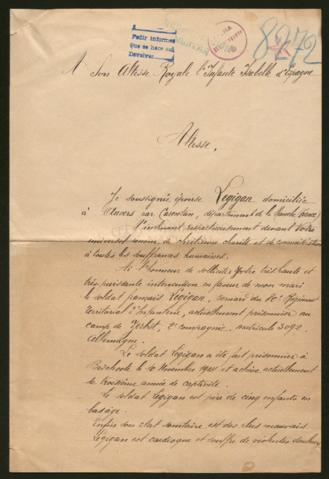 Pedir informes
que se hace así
Devolver
8272
A Son Altesse Royale l'Infante Isabelle d'Espagne
Altesse,
Je soussignée épouse Légigan domiciliée
à Auvers par Carentan, département de la Manche (France)
S'inclinant respectueusement devant Votre
universel renom de chrétienne charité et de
à toutes les souffrances humaines.
Ai l'honneur de solliciter Votre très haute et
très puissante intervention en faveur de mon mari
le soldat français Légigan, du 80e Régiment
Territorial d'Infanterie, actuellement prisonnier au
camp de Zerbst, 2e compagnie, matricule 3092.
Allemagne.
Le soldat Légigan a été fait prisonnier à
le 10 Novembre 1914 et achève actuellement
la troisième année de captivité.
Le soldat Légigan est père de cinq enfants en
bas âge.
Enfin son état sanitaire est des plus mauvais
Légigan est cardiaque et souffre de violentes douleurs